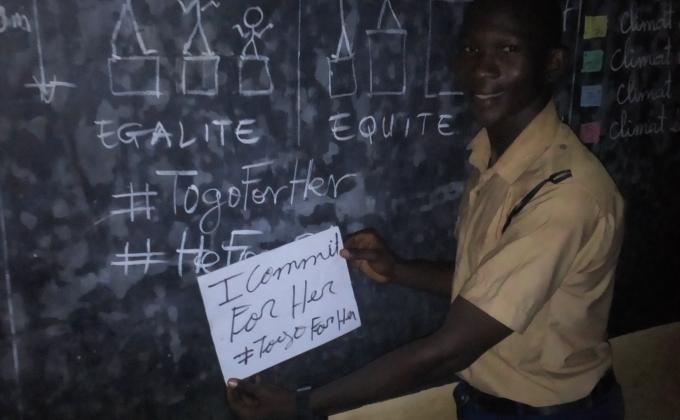 EGALITE
EQUITE
#TogoForHer
I Commit
For Her
#Togo For Her
Climat
Climat
Climat
Climat